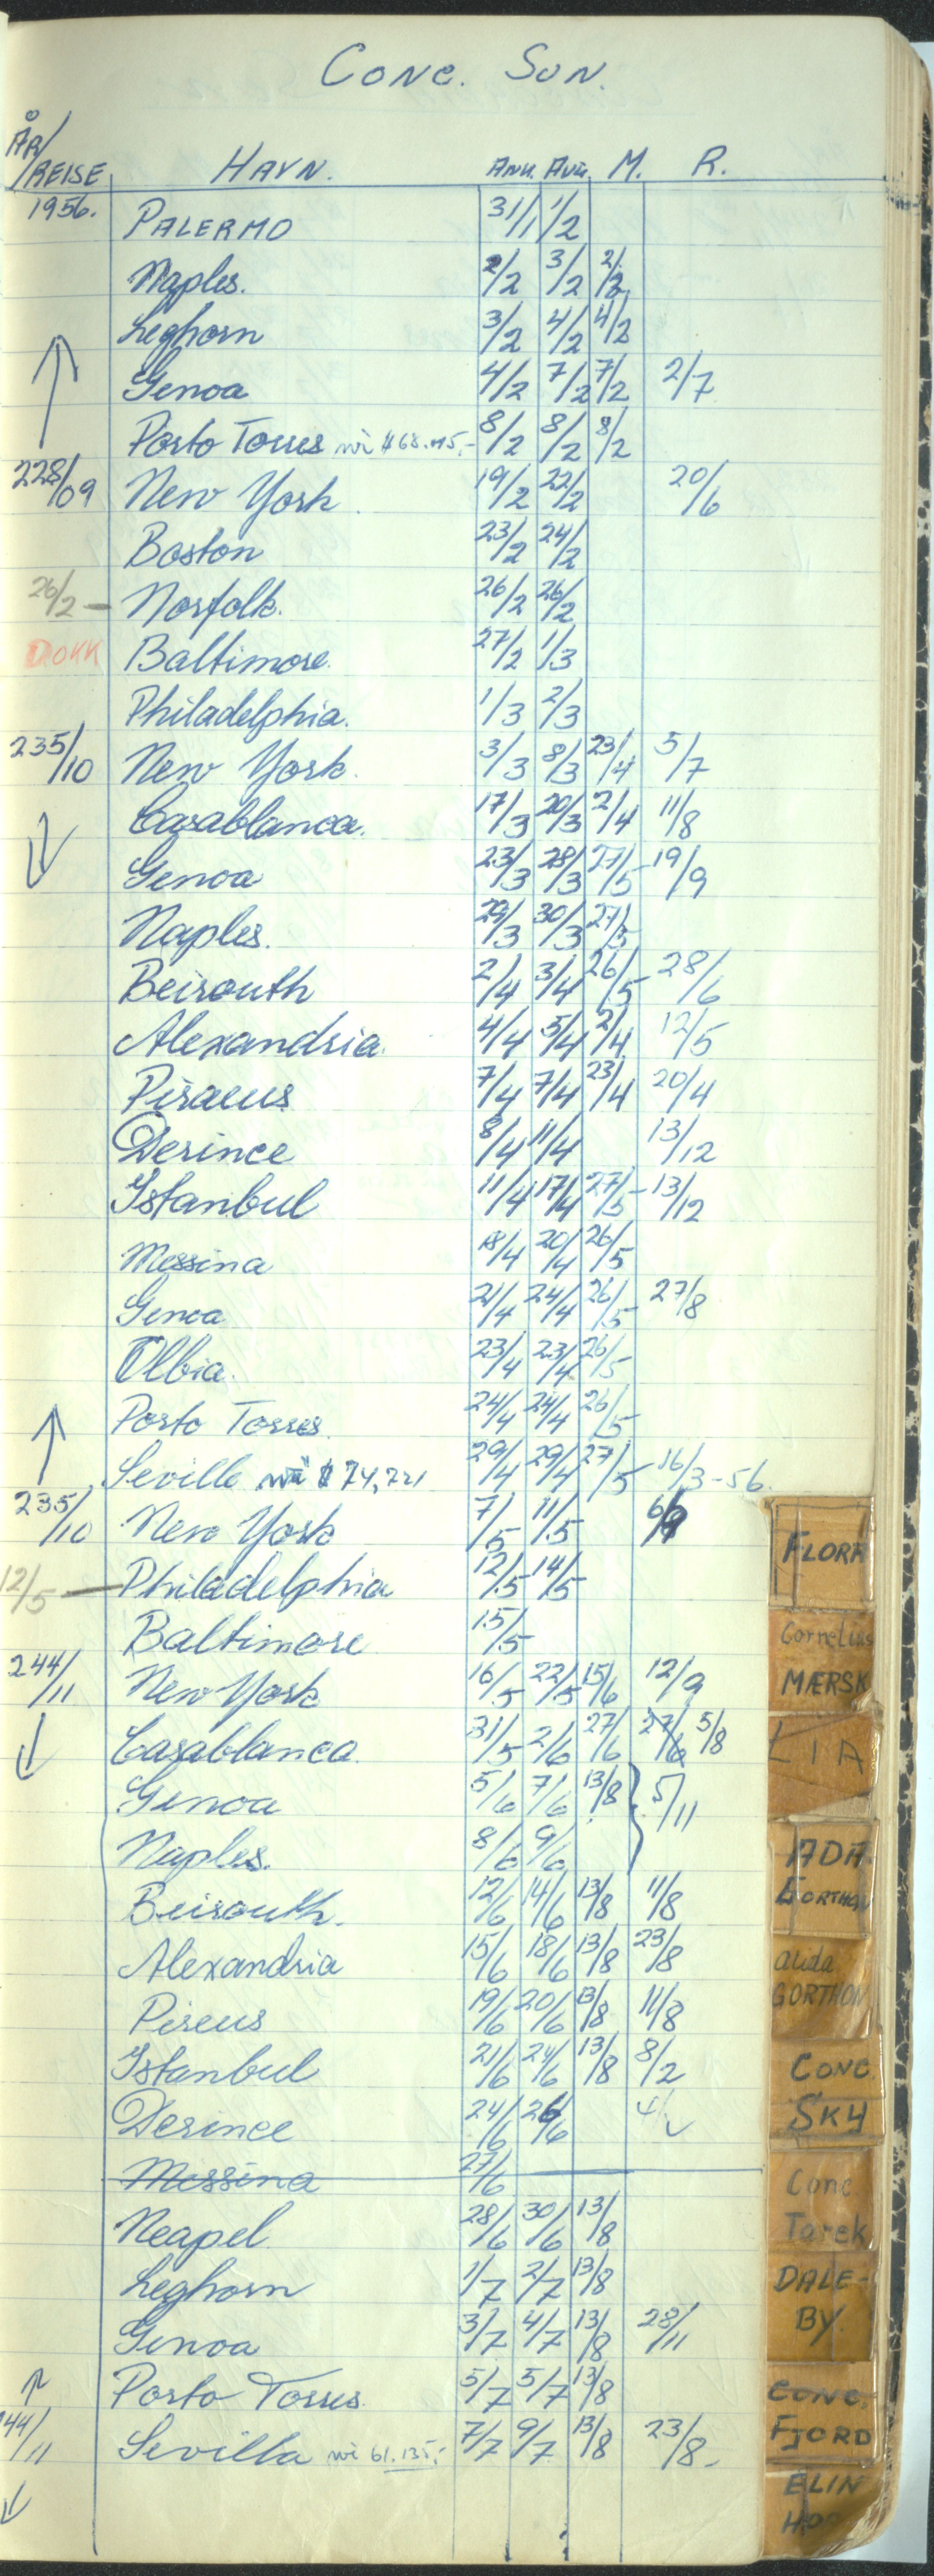 CONC. SUN.
ÅR/REISE HAVN. ANK. AVG. M. R.
1956. PALERMO 31/1 1/2
Naples. 2/2 3/2 2/2
Leghorn 3/2 4/2 4/2
Genoa 4/2 7/2 7/2 2/7
Porto Torres 8/2 8/2 8/2
228/09 New York 19/2 22/2 20/6
Boston 23/2 24/2
26/2 - Norfolk. 26/2 26/2
DOKK Baltimore. 27/2 1/3
Philadelphia. 1/3 2/3
235/10 New York. 3/3 8/3 23/4 5/7
Casablanca. 17/3 20/3 2/4 11/8
Genoa 23/3 28/3 27/5 19/9
Naples. 29/3 30/3 27/5
Beirouth 2/4 3/4 26/5 28/6
Alexandria. 4/4 5/4 2/4 12/5
Piraeus 7/4 7/4 23/4 20/4
Derince 8/4 11/4 13/12
Istanbul 11/4 17/4 27/5 - 13/12
Messina 18/4 20/4 26/5
Genoa 21/4 24/4 26/5 27/8
Olbia. 23/4 23/4 26/5
Porto Torres. 24/4 24/4 26/5
Seville $ 74,721 29/4 29/4 27/5 - 16/3-56.
235/10 New York 7/5 11/5
12/5 — Philadelphia 12/5 14/5
Baltimore 15/5
244/11 New York 16/5 22/5 15/6 12/9
Casablanca 31/5 2/6 27/6 27/6 5/8
Genoa 5/6 7/6 13/8 5/11
Naples. 8/6 9/6
Beirouth. 12/6 14/6 13/8 11/8
Alexandria 15/6 18/6 13/8 23/8
Pireus 19/6 20/6 13/8 11/8
Istanbul 21/6 24/6 13/8 8/2
Derince 24/6 26/6
Messina 27/6
Neapel 28/6 30/6 13/8
Leghorn 1/7 2/7 13/8
Genoa 3/7 4/7 13/8 28/11
Porto Torres. 5/7 5/7 13/8
44/11 Sevilla 61.135,- 7/7 9/7 13/8 23/8-
FLORA
Cornelius
MÆRSK
LIA
ADA
GORTHON
alida
GORTHON
CONC.
SKY
Conc
Tarek
DALE-
BY.
CONC.
FJORD
ELIN